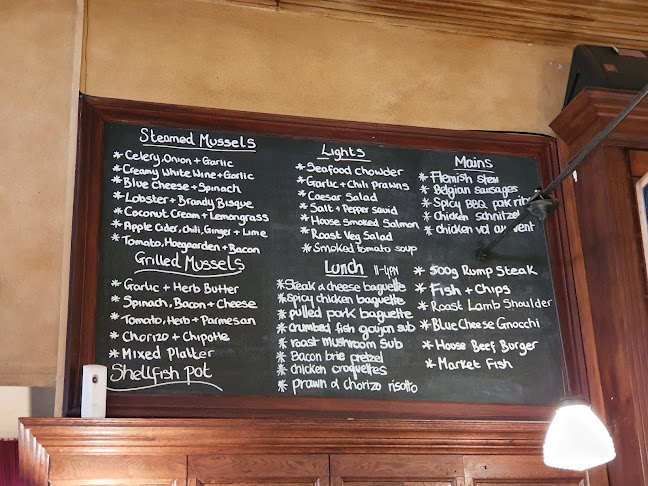 Steamed Mussels
* Celery, Onion + Garlic
* Creamy White Wine + Garlic
* Blue Cheese + Spinach
* Lobster + Brandy Bisque
* Coconut Cream + Lemongrass
* Apple Cider, Chili, Ginger + Lime
* Tomato, Hoegaarden + Bacon
Grilled Mussels
* Garlic + Herb Butter
* Spinach, Bacon + Cheese
* Tomato, Herb + Parmesan
* Chorizo + Chipotle
* Mixed Platter
Shellfish pot
Lights
* Seafood chowder
* Garlic + Chili Prawns
* Caesar Salad
* Salt + Pepper squid
* House Smoked Salmon
* Roast Veg Salad
* Smoked tomato soup
Lunch 11-4PM
* Steak & cheese baguette
* spicy chicken baguette
* pulled pork baguette
* crumbed fish goujon sub
* roast mushroom sub
* Bacon brie pretzel
* chicken croquettes
* prawn & chorizo risotto
Mains
* Flemish stew
* Belgian sausages
* Spicy BBQ pork rib
* chicken schnitzel
* chicken vol au vent
* 500g Rump Steak
* Fish + Chips
* Roast Lamb Shoulder
* Blue Cheese Gnocchi
* House Beef Burger
* Market Fish